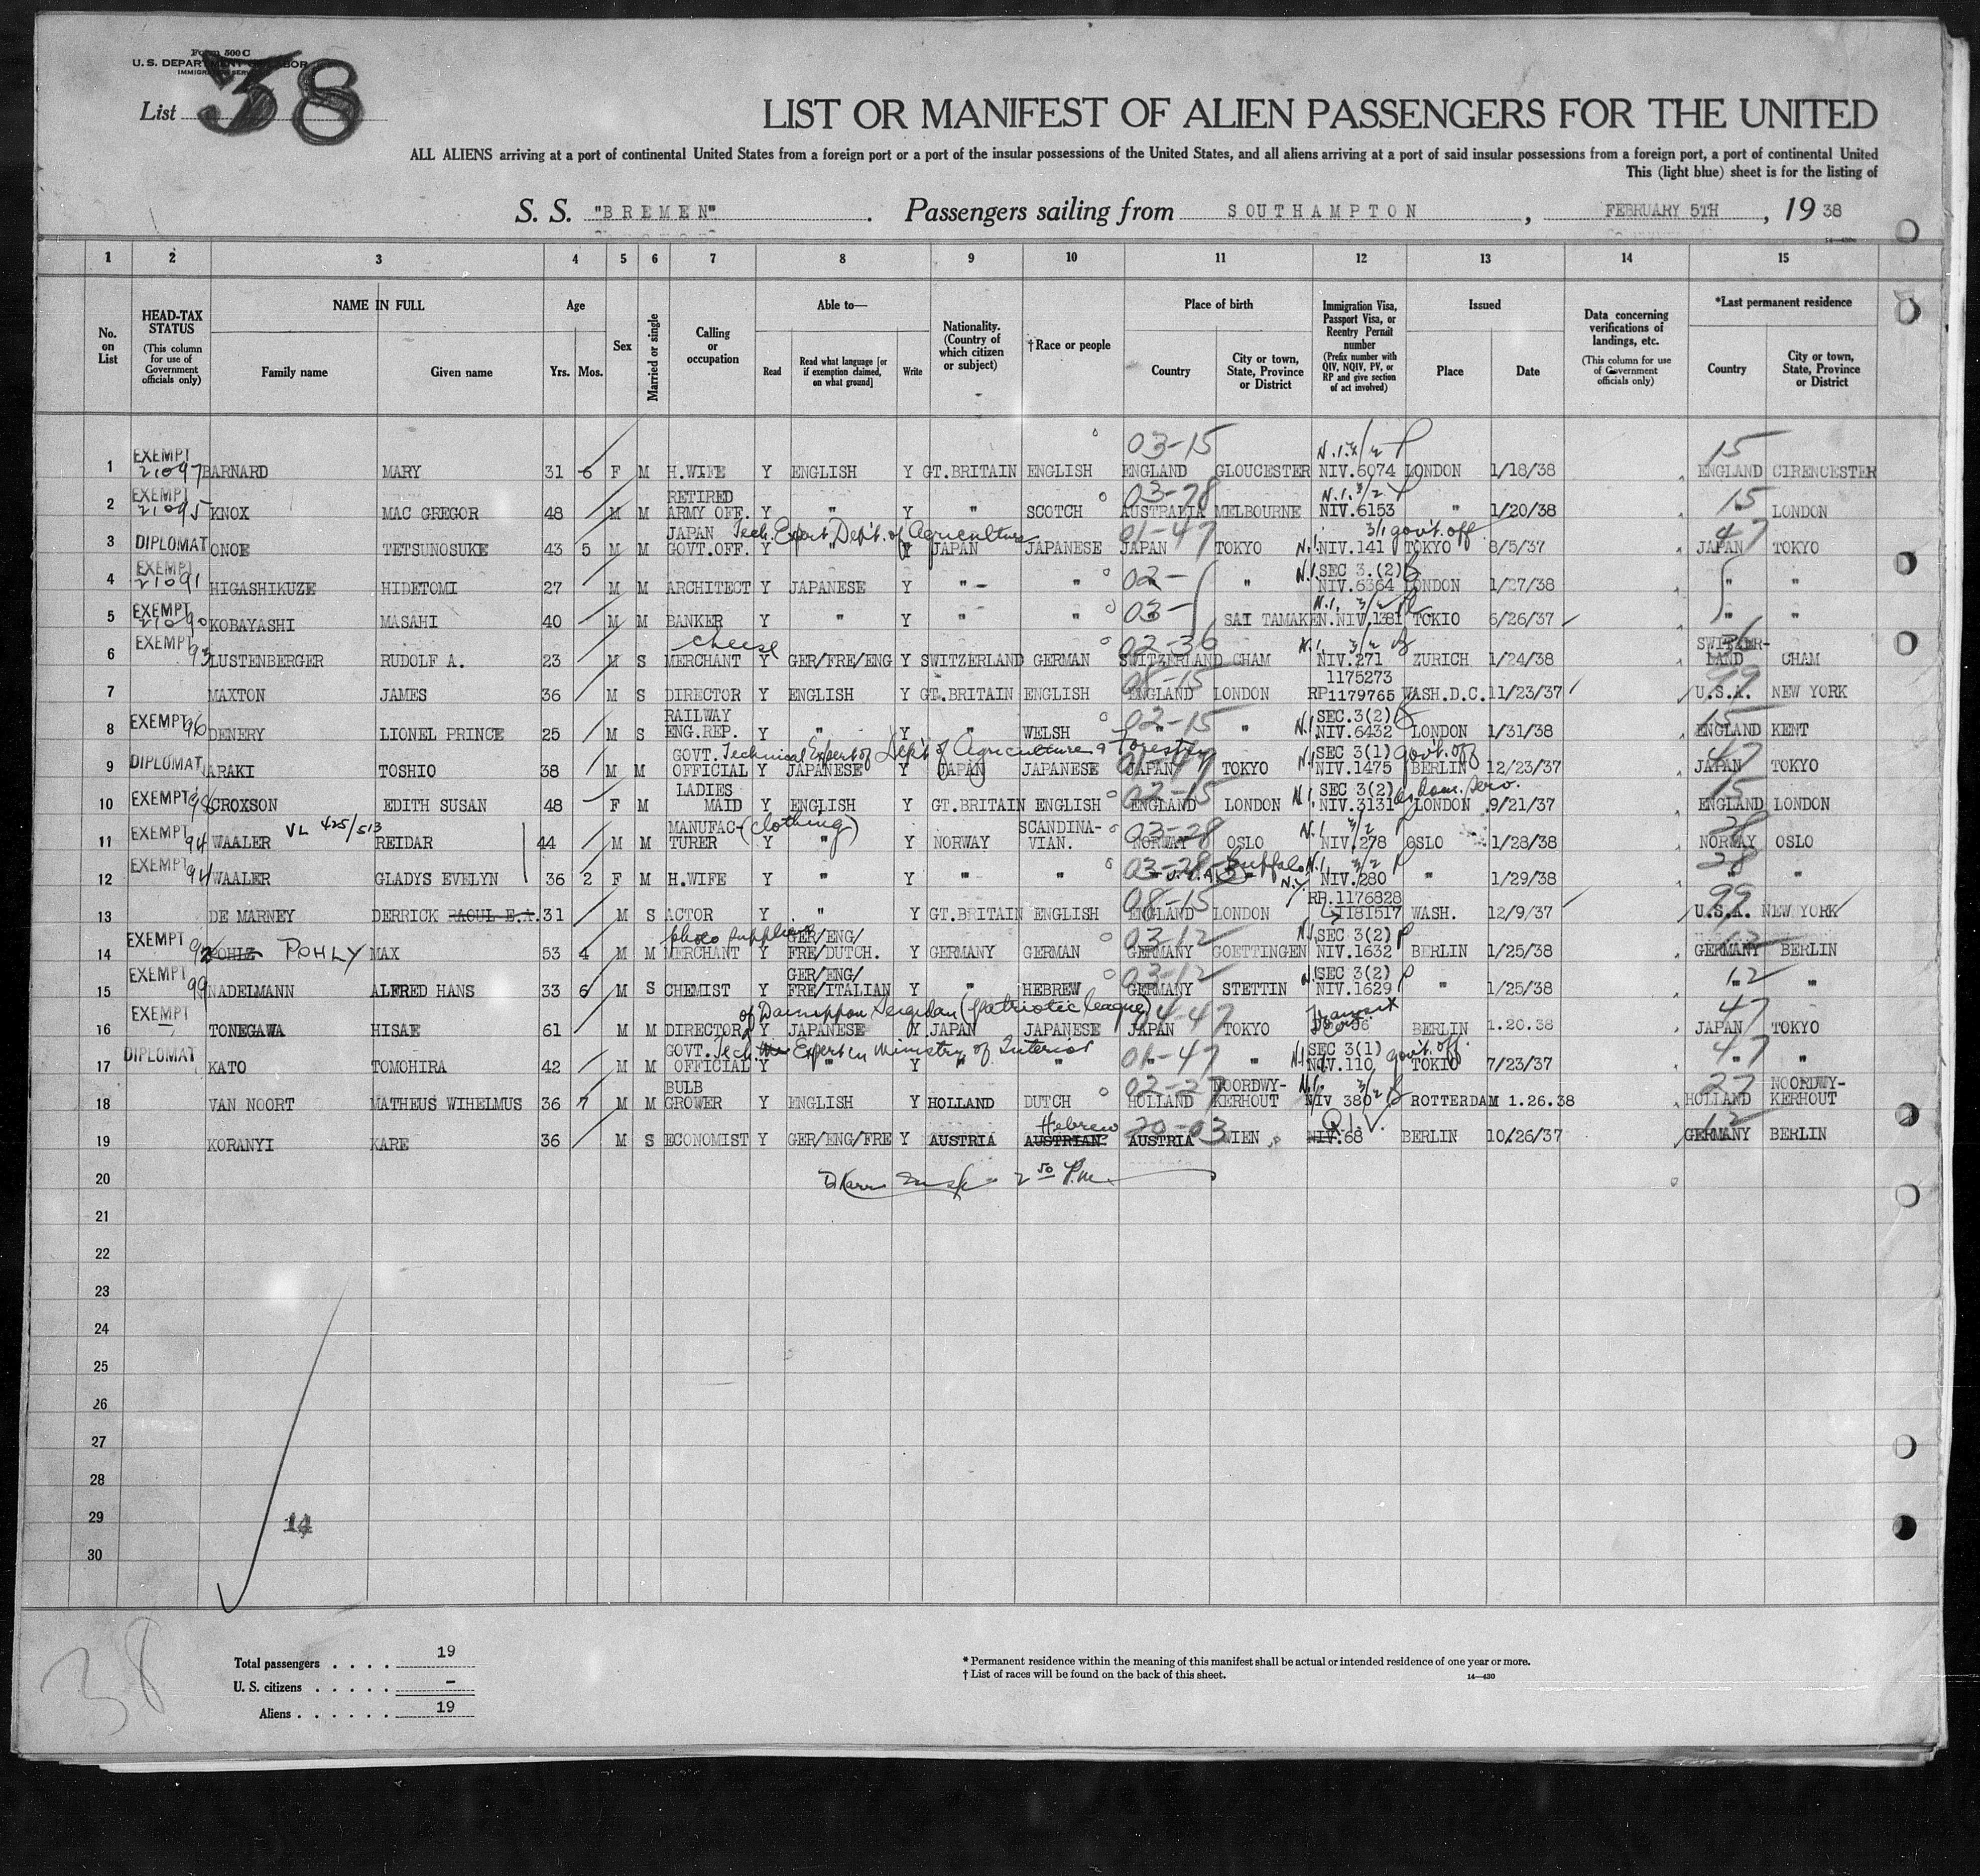 Form 500 C
U. S. DEPARTMENT OF LABOR
IMMIGRATION SERVICE
List 38
LIST OR MANIFEST OF ALIEN PASSENGERS FOR THE UNITED
ALL ALIENS arriving at a port of continental United States from a foreign port or a port of the insular possessions of the United States, and all aliens arriving at a port of said insular possessions from a foreign port, a port of continental United
This (light blue) sheet is for the listing of
S. S. "BREMEN" . Passengers sailing from SOUTHAMPTON , FEBRUARY 5TH , 19 38
1 2 3 4 5 6 7 8 9 10 11 12 13 14 15
No. on List
HEAD-TAX STATUS (This column for use of Government officials only)
NAME IN FULL Family name Given name
Age Yrs. Mos.
Sex
Married or single
Calling or occupation
Able to— Read Read what language [or if exemption claimed, on what ground] Write
Nationality. (Country of which citizen or subject)
†Race or people
Place of birth Country City or town, State, Province or District
Immigration Visa, Passport Visa, or Reentry Permit number (Prefix number with QIV, NQIV, PV, or RP and give section of act involved)
Issued Place Date
Data concerning verifications of landings, etc. (This column for use of Government officials only)
*Last permanent residence Country City or town, State, Province or District
03-15 15
1 EXEMPT 21097 BARNARD MARY 31 6 F M H.WIFE Y ENGLISH Y GT.BRITAIN ENGLISH ENGLAND GLOUCESTER NIV.6074 LONDON 1/18/38 ENGLAND CIRENCESTER
03-28 N.I. 3/2 15
2 EXEMPT 21095 KNOX MAC GREGOR 48 M M RETIRED ARMY OFF. Y " Y " SCOTCH AUSTRALIA MELBOURNE NIV.6153 " 1/20/38 LONDON
Tech. Expert Dep't. of Agriculture 01-47 3/1 gov't. off 47
3 DIPLOMAT ONOE TETSUNOSUKE 43 5 M M JAPAN GOVT.OFF. Y " Y JAPAN JAPANESE JAPAN TOKYO N.I. NIV.141 TOKYO 8/5/37 JAPAN TOKYO
4 EXEMPT 21091 HIGASHIKUZE HIDETOMI 27 M M ARCHITECT Y JAPANESE Y " " 02- " N.I. SEC 3.(2) NIV.6364 LONDON 1/27/38 " "
5 EXEMPT 21090 KOBAYASHI MASAHI 40 M M BANKER Y " Y " " 03- SAI TAMAKEN. N.I. 3/2 NIV.1381 TOKIO 5/26/37 " "
cheese 02-36 N.I. 3/2 36
6 EXEMPT 93 LUSTENBERGER RUDOLF A. 23 M S MERCHANT Y GER/FRE/ENG Y SWITZERLAND GERMAN SWITZERLAND CHAM NIV.271 ZURICH 1/24/38 SWITZER-LAND CHAM
08-15 1175273 99
7 MAXTON JAMES 36 M S DIRECTOR Y ENGLISH Y GT.BRITAIN ENGLISH ENGLAND LONDON RP1179765 WASH.D.C. 11/23/37 U.S.A. NEW YORK
02-15 15
8 EXEMPT 96 DENERY LIONEL PRINCE 25 M S RAILWAY ENG.REP. Y " Y " WELSH " " N.I. SEC.3(2) NIV.6432 LONDON 1/31/38 ENGLAND KENT
Technical Expert of Dep't of Agriculture & Forestry 01-47 gov't. off 47
9 DIPLOMAT ARAKI TOSHIO 38 M M GOVT. OFFICIAL Y JAPANESE Y JAPAN JAPANESE JAPAN TOKYO N.I. SEC 3(1) NIV.1475 BERLIN 12/23/37 JAPAN TOKYO
02-15 as dom. serv. 15
10 EXEMPT 98 CROXSON EDITH SUSAN 48 F M LADIES MAID Y ENGLISH Y GT.BRITAIN ENGLISH ENGLAND LONDON N.I. SEC 3(2) NIV.3131 LONDON 9/21/37 ENGLAND LONDON
VL 425/513 (clothing) 03-28 N.I. 3/2 28
11 EXEMPT 94 WAALER REIDAR 44 M M MANUFAC-TURER Y " Y NORWAY SCANDINA-VIAN. NORWAY OSLO NIV.278 OSLO 1/28/38 NORWAY OSLO
03-28 Buffalo N.Y. N.I. 3/2 28
12 EXEMPT 94 WAALER GLADYS EVELYN 36 2 F M H.WIFE Y " Y " " U.S.A. NIV.280 " 1/29/38 " "
08-15 99
13 DE MARNEY DERRICK RAOUL E.A. 31 M S ACTOR Y " Y GT.BRITAIN ENGLISH ENGLAND LONDON RP.1176828 1181517 WASH. 12/9/37 U.S.A. NEW YORK
photo supplies 03-12 12
14 EXEMPT 92 POHLY MAX 53 4 M M MERCHANT Y GER/ENG/ FRE/DUTCH. Y GERMANY GERMAN GERMANY GOETTINGEN N.I. SEC 3(2) NIV.1632 BERLIN 1/25/38 GERMANY BERLIN
03-12 12
15 EXEMPT 99 NADELMANN ALFRED HANS 33 6 M S CHEMIST Y GER/ENG/ FRE/ITALIAN Y " HEBREW GERMANY STETTIN N.I. SEC 3(2) NIV.1629 " 1/25/38 " "
of Dainippon (patriotic league) 04-47 Transit 47
16 EXEMPT TONEGAWA HISAE 61 M M DIRECTOR Y JAPANESE Y JAPAN JAPANESE JAPAN TOKYO BERLIN 1.20.38 JAPAN TOKYO
Tech. Expert in Ministry of Interior 01-47 gov't. off. 47
17 DIPLOMAT KATO TOMOHIRA 42 M M GOVT. OFFICIAL Y " Y " " " " N.I. SEC 3(1) NIV.110 TOKIO 7/23/37 " "
02-27 N.I. 3/2 27
18 VAN NOORT MATHEUS WIHELMUS 36 7 M M BULB GROWER Y ENGLISH Y HOLLAND DUTCH HOLLAND NOORDWY-KERHOUT NIV 380 ROTTERDAM 1.26.38 HOLLAND NOORDWY-KERHOUT
Hebrew 20-03 Q.I.V. 12
19 KORANYI KARE 36 M S ECONOMIST Y GER/ENG/FRE Y AUSTRIA AUSTRIAN. AUSTRIA WIEN NIV.68 BERLIN 10/26/37 GERMANY BERLIN
20 2 50 P.m.
21
22
23
24
25
26
27
28
29 14
30
38
Total passengers . . . . 19
U. S. citizens . . . . . -
Aliens . . . . . . 19
* Permanent residence within the meaning of this manifest shall be actual or intended residence of one year or more.
† List of races will be found on the back of this sheet. 14—430